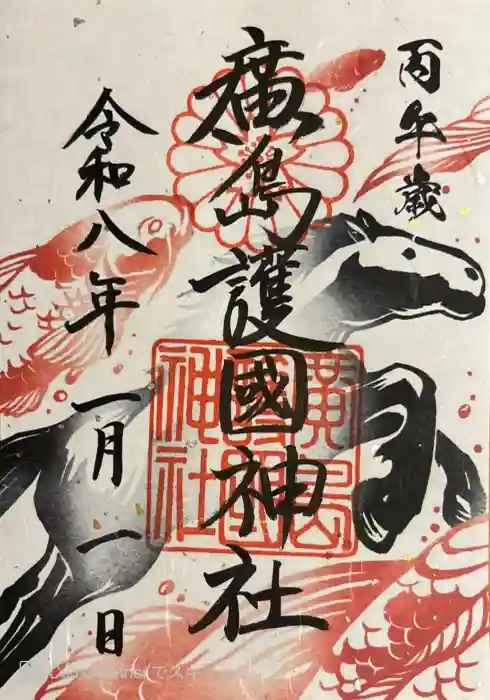 丙午歳
廣島護國神社
令和八年一月一日
廣島
護國
神社